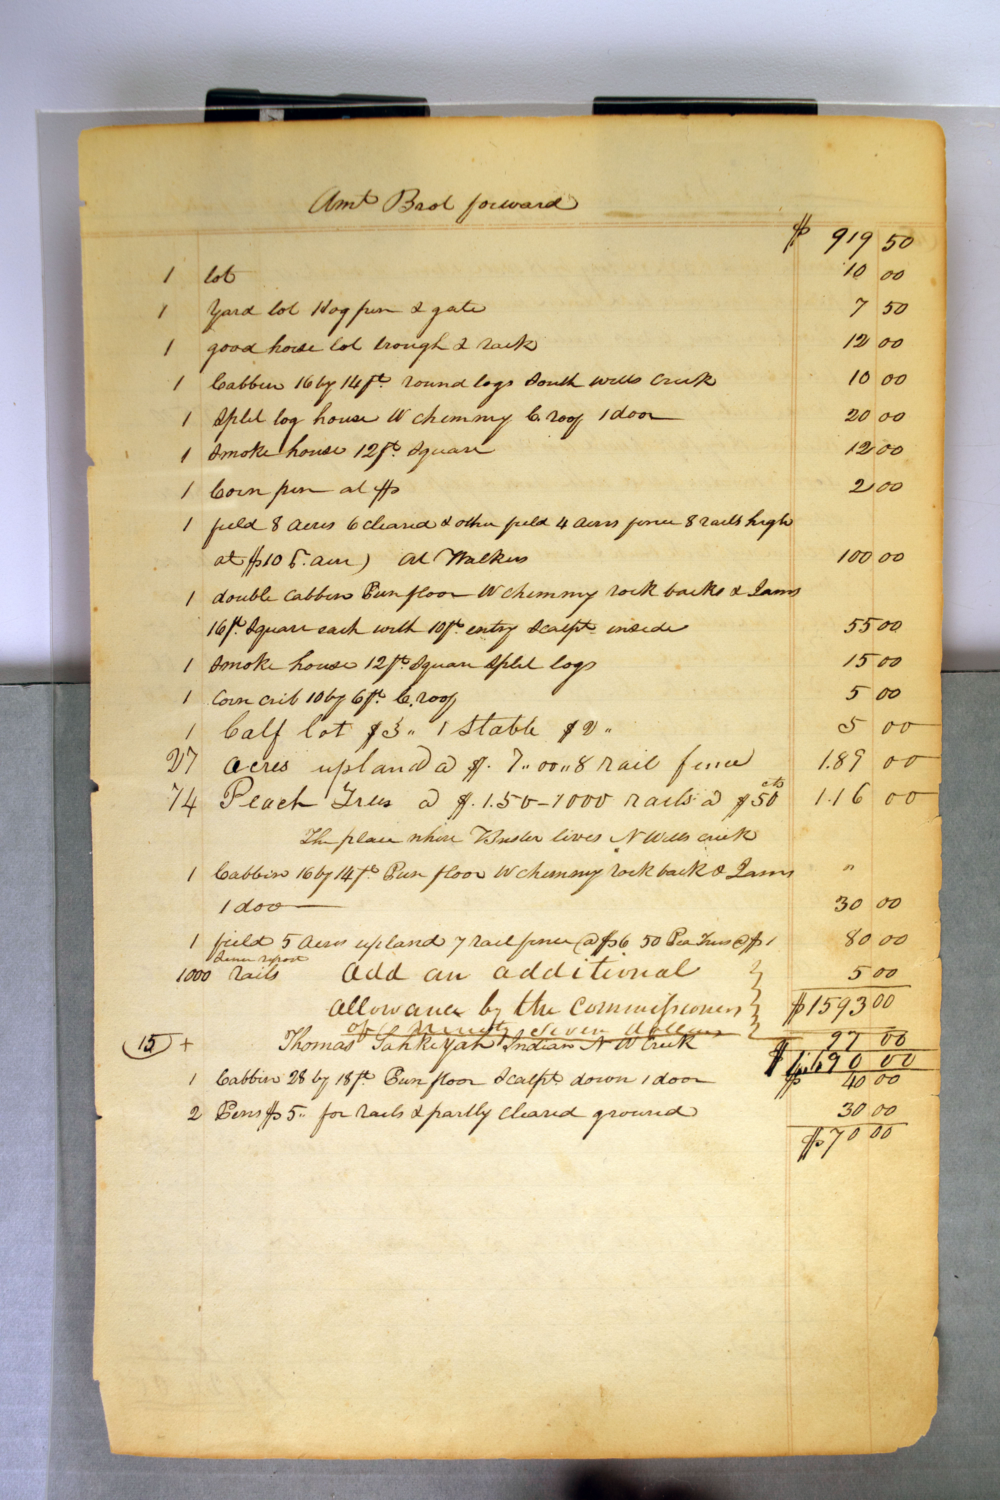 Amt Brot forward
$ 919 50
1 lot 10 00
1 Yard lot Hog pen & gate 7 50
1 good horse lot trough & rack 12 00
1 Cabbin 16 by 14 ft. round logs South wills Creek 10 00
1 Split log house W chimney C. roof 1 door 20 00
1 Smoke house 12 ft. Square 12 00
1 Corn pen at $ 2 00
1 field 8 acres 6 cleared & other field 4 acres fence 8 rails high
at $10 acre) At Walkers 100 00
1 double Cabbin Pun floor W chimney rock backs & Jams
16 ft. Square each with 10 ft. entry Scalpt inside 55 00
1 Smoke house 12 ft. Square Split logs 15 00
1 Corn crib 10 by 6 ft. C. roof 5 00
1 Calf lot $3 " 1 Stable $2 " 5 00
27 Acres upland @ $. 7 " 00 " 8 rail fence 1.89 00
74 Peach Trees @ $. 1.50 - 1000 rails @ $50 cts 1.16 00
The place where lives N Wills creek
1 Cabbin 16 by 14 ft. Pun floor W chimney rock back & Jams "
1 door 30 00
1 field 5 Acres upland 7 rail fence @ $6 50 Pea Trees @ $1 80 00
1000 rails Add an additional 5 00
allowance by the Commissioners $1593 00
of Ninety Seven dollars 97 00
15 + Thomas Tahkeyah Indian N W Creek $1,690 00
1 Cabbin 28 by 18 ft Pun floor Scalpt down 1 door $ 40 00
2 Pens $5 " for rails & partly cleared ground 30 00
$70 00